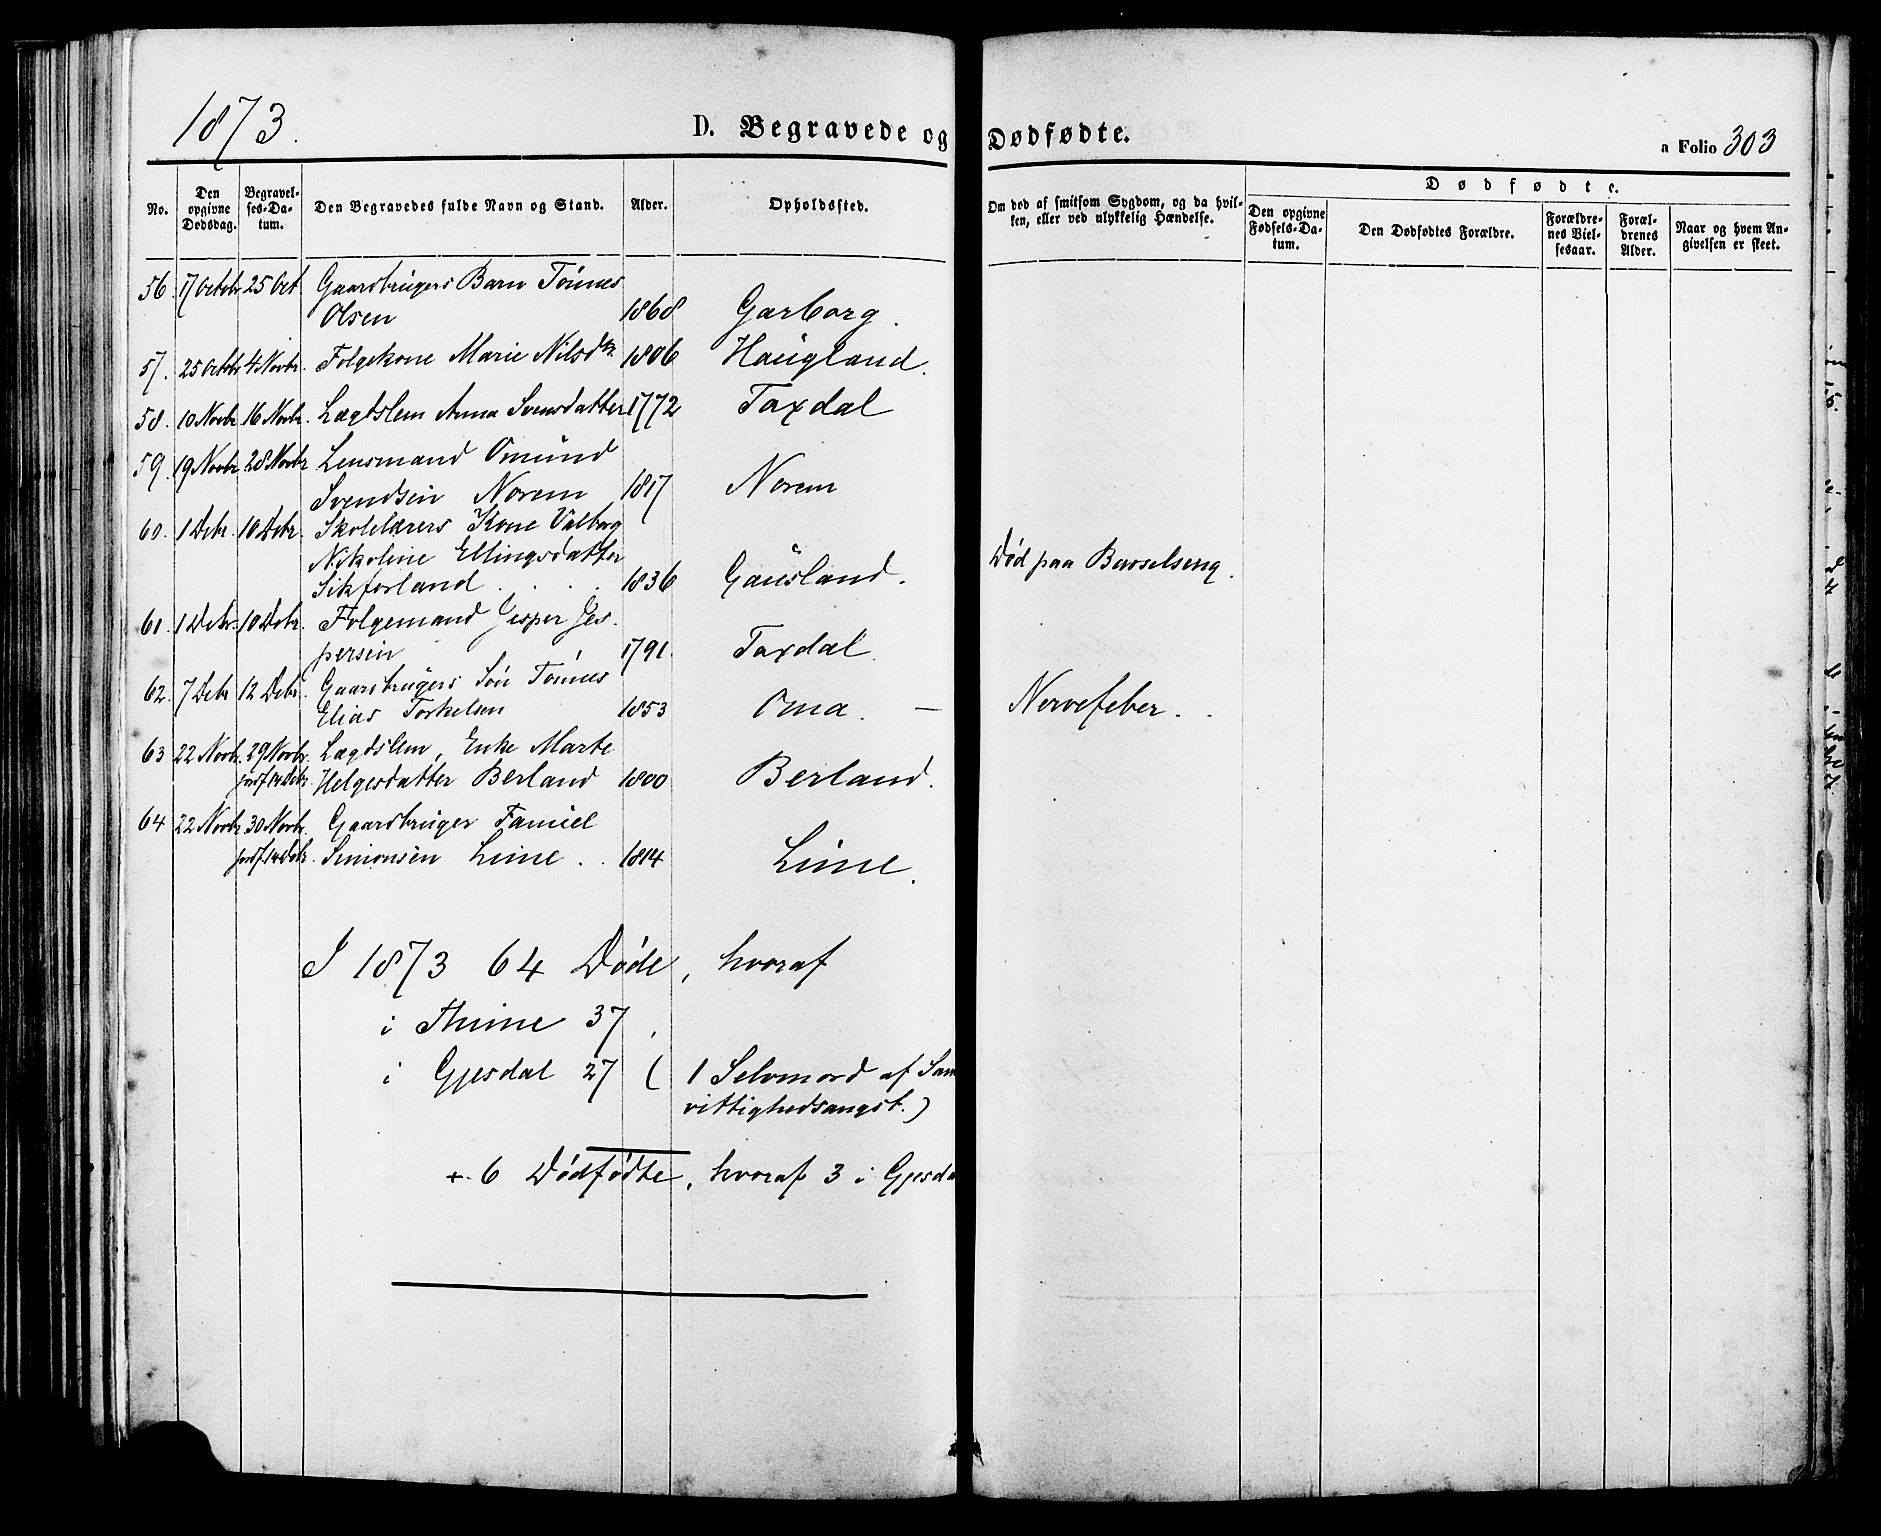 1873.
D. Begravede og Dødfødte.
a Folio 303
No.
Den opgivne Dødsdag.
Begravelses-Datum.
Den Begravedes fulde Navn og Stand.
Alder.
Opholdssted.
Om død af smitsom Sygdom, og da hvilken, eller ved ulykkelig Hændelse.
Dødfødte.
Den opgivne Fødsels-Datum.
Den Dødfødtes Forældre.
Forældrenes Vielsesaar.
Forældrenes Alder.
Naar og hvem Angivelsen er skeet.
56. 17 Octobr 25 Oct Gaardbrugers Barn Tønnes
Olsen 1868 Garborg.
57. 25 Octobr 4 Novbr. Folgekone Marie Nilsdtr. 1806 Haugland.
58. 10 Novbr 16 Novbr. Lægdslem Anna Svensdatter 1772 Taxdal
59. 19 Novbr 28 Novbr Lensmand Omund
Svendsen Norem 1817 Norem
60. 1 Debr. 10 Debr. Skolelærers Kone Valborg
Nikoline Ellingsdatter
Sikforland . . . 1836 Gausland. Død paa Barselseng.
61. 1 Debr. 10 Debr. Folgemand Jesper Jes-
persen 1791. Taxdal.
62. 7 Debr 12 Debr. Gaardbrugers Søn Tønnes
Elias Torkelsen 1853 Oma. — Nervefeber. .
63 22 Novbr. 29 Novbr. Lægdslem, Enke Marte
jordf 14 Debr. Helgesdatter Berland 1800 Berland.
64 22 Novbr 30 Novbr. Gaardbruger Samuel
jordf 14 Debr. Simonsen Lime . . 1814 Lime.
I 1873 64 Døde, hvoraf
i Thime 37,
i Gjesdal 27 ( 1 Selvmord af Sam
vittighedsangst.)
+ 6 Dødfødte, hvoraf 3 i Gjesda